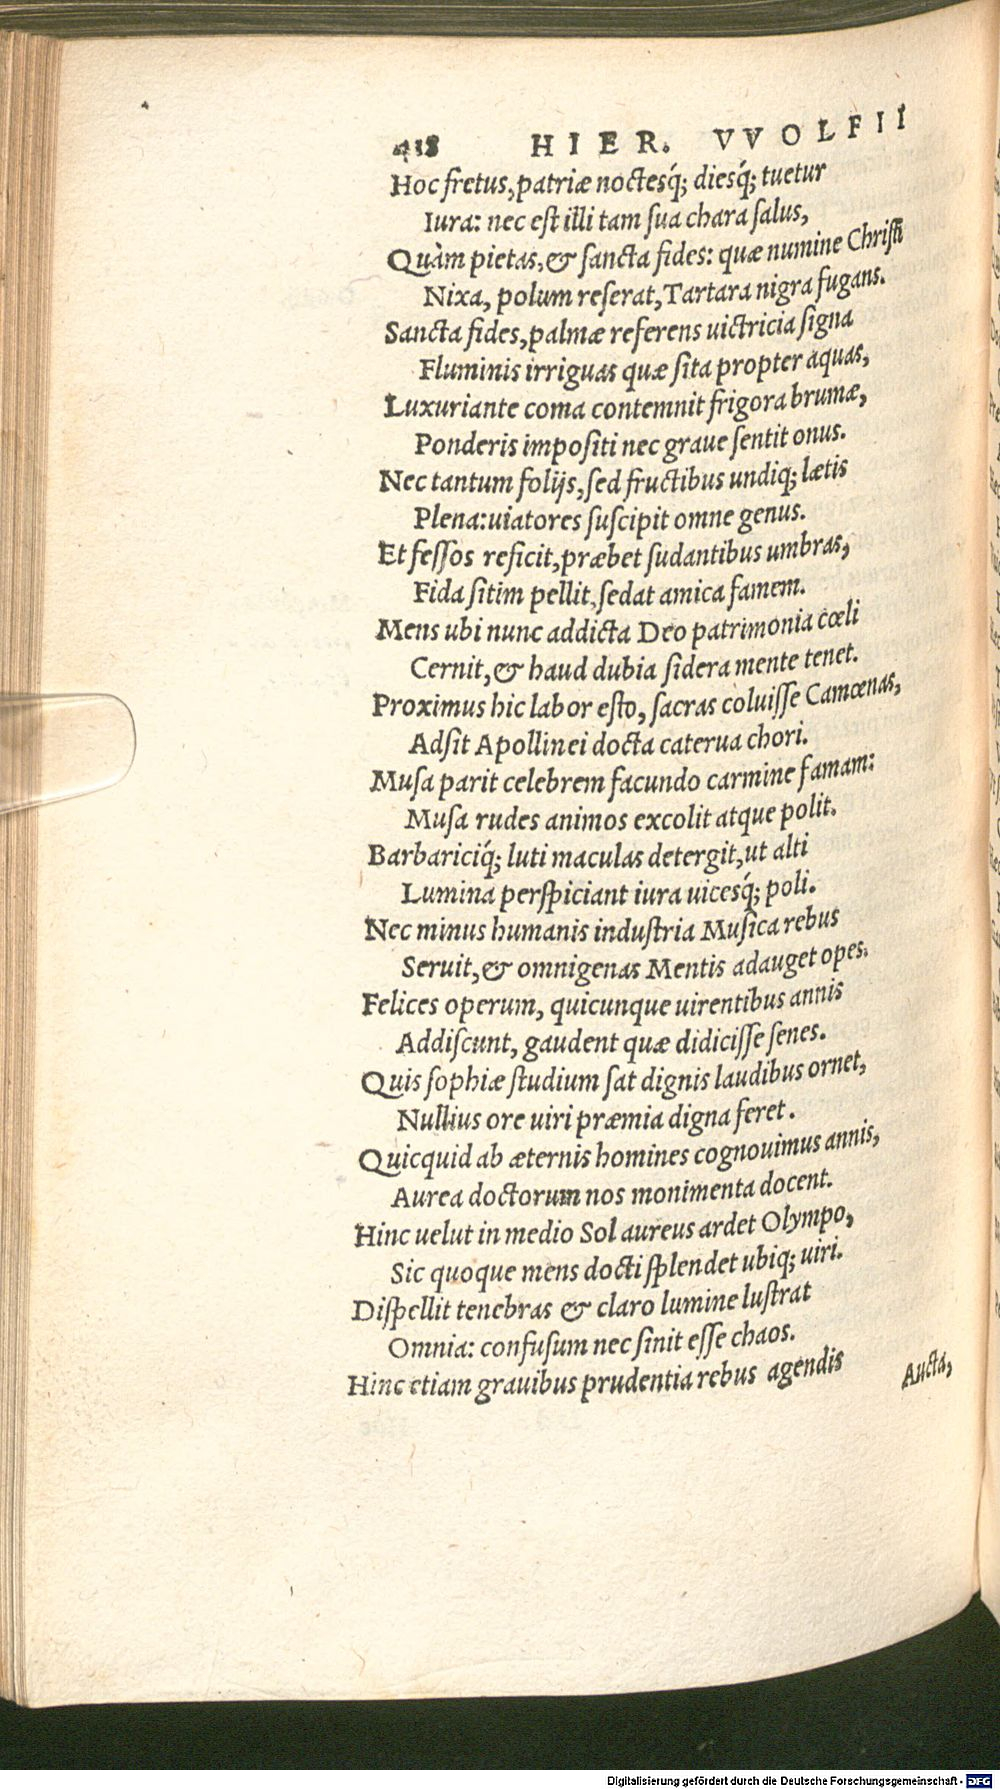 438 HIER. VVOLFII
Hoc fretus, patriæ noctesq́; diesq́; tuetur
Iura: nec est illi tam sua chara salus,
Quàm pietas, & sancta fides: quæ numine Christi
Nixa, polum reserat, Tartara nigra fugans.
Sancta fides, palmæ referens uictricia signa
Fluminis irriguas quæ sita propter aquas,
Luxuriante coma contemnit frigora brumæ,
Ponderis impositi nec graue sentit onus.
Nec tantum folijs, sed fructibus undiq; lætis
Plena: uiatores suscipit omne genus.
Et fessos reficit, præbet sudantibus umbras,
Fida sitim pellit, sedat amica famem.
Mens ubi nunc addicta Deo patrimonia cœli
Cernit, & haud dubia sidera mente tenet.
Proximus hic labor esto, sacras coluisse Camœnas,
Adsit Apollinei docta caterua chori.
Musa parit celebrem facundo carmine famam:
Musa rudes animos excolit atque polit.
Barbariciq́; luti maculas detergit, ut alti
Lumina perspiciant iura uicesq́; poli.
Nec minus humanis industria Musica rebus
Seruit, & omnigenas Mentis adauget opes.
Felices operum, quicunque uirentibus annis
Addiscunt, gaudent quæ didicisse senes.
Quis sophiæ studium sat dignis laudibus ornet,
Nullius ore uiri præmia digna feret.
Quicquid ab æternis homines cognouimus annis,
Aurea doctorum nos monimenta docent.
Hinc uelut in medio Sol aureus ardet Olympo,
Sic quoque mens docti splendet ubiq; uiri.
Dispellit tenebras & claro lumine lustrat
Omnia: confusum nec sinit esse chaos.
Hinc etiam grauibus prudentia rebus agendis
Aucta,
Digitalisierung gefördert durch die Deutsche Forschungsgemeinschaft - DFG